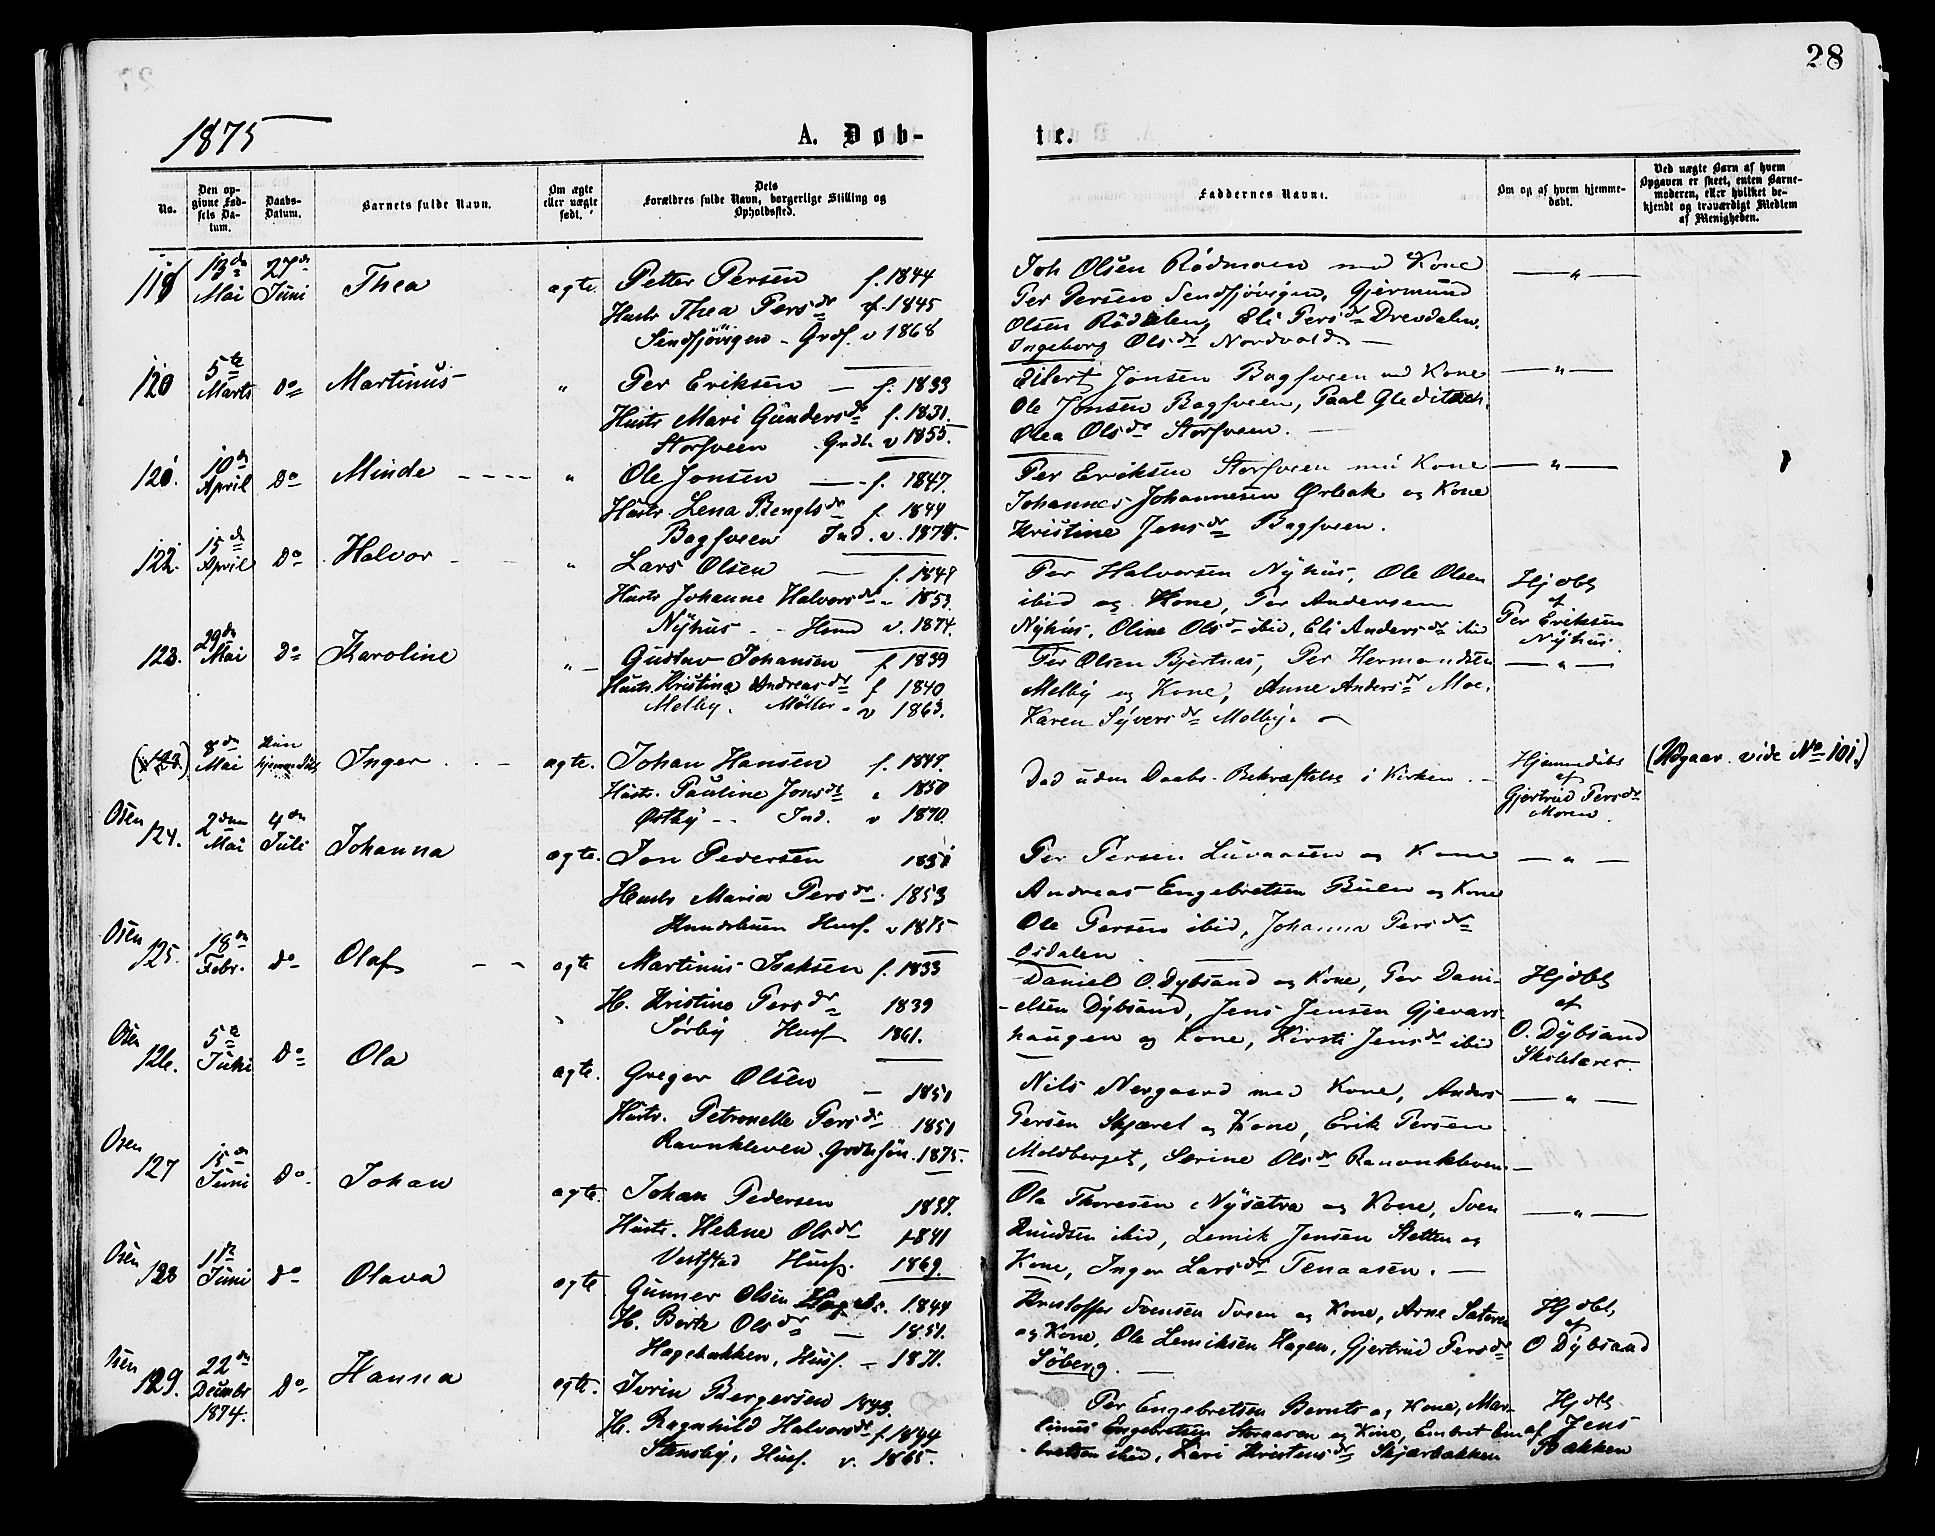 28
1875
A. Døb-
te.
No.
Den op-
givne Fød-
sels Da-
tum.
Daabs-
Datum.
Barnets fulde Navn.
Om ægte
eller uægte
født.
Dets
Forældres fulde Navn, borgerlige Stilling og
Opholdssted.
Faddernes Navne.
Om og af hvem hjemme-
døbt.
Ved uægte Barn af hvem
Opgaven er skeet, enten Barne-
moderen, eller hvilket be-
kjendt og troværdigt Medlem
af Menigheden.
119 13de Mai 27de Juni Thea ægte. Petter Persen f. 1844
Hustr. Thea Persdr f. 1845
Sendsjövigen - Grdf. v 1868
Joh Olsen Rödmoen med Kone
Per Persen Sendsjövigen, Gjermund
Olsen Rödalen, Eli Persdr Drevdalen.
Ingeborg Olsdr Nordvold. —
— " —
120 5te Marts do Martinus " Per Eriksen — f. 1833
Hustr Mari Gundersdr f. 1831.
Storsveen Grdbr. v 1855.
Eilert Jonsen Bagsveen med Kone
Ole Jonsen Bagsveen, Paal Gleditsch.
Olea Olsdr Storsveen. —
— " —
121. 10de April do Minde - - - - " Ole Jonsen — f. 1847.
Hustr. Lena Bengtsdr f. 1844
Bagsveen Ind. v. 1875.
Per Eriksen Storsveen med Kone
Johannes Johannesen Ørbak og Kone
Kristine Jensdr Bagsveen.
— " —
122. 15de April do Halvor " Lars Olsen — f. 1849
Hustr Johanne Halvorsdr " 1853.
Nyhus - - Hsmd v. 1874.
Per Halvorsen Nyhus, Ole Olsen
ibid og Kone, Per Andersen
Nyhus, Oline Olsdr ibid, Eli Andersdr ibid
Hjdbt
af
Per Eriksen
Nyhus.
123. 29de Mai do Karoline " - Gustav Johansen f 1839
Hustr. Kristina Andreasdr f 1840
Melby. Møller - v 1863.
Per Olsen Bjertnæs, Per Hermandsen
Melby og Kone, Anne Andersdr Moe.
Karen Syversdr Melby. —
— " —
(123.) 8de Mai Kun hjemmedøbt Inger . . - ægte. Johan Hansen f. 1849.
Hustr. Pauline Jonsdr " 1850
Østby - - Ind. v 1870.
Død uden Daabs-Bekræftelse i Kirken. -
Hjemmedøbt
af
Gjertrud Persdr
Moren.
(Udgaar. vide No 101.)
Osen 124. 2den Mai 4de Juli Johanna ægte. Jon Pedersen 1850
Hustr Maria Persdr. 1853
Hundsbuen Husf. v 1875
Per Persen Luvaasen og Kone
Andreas Engebretsen Buen og Kone
Ole Persen ibid, Johanna Persdr
Osdalen.
— " —
Osen 125. 18de Febr. do Olaf - - ægte Martinus Isaksen f. 1833
H. Kristine Persdr 1839
Sørby Husf 1861.
Daniel O. Dybsand og Kone, Per Dani-
-elsen Dybsand, Jens Jensen Gjevars-
haugen og Kone, Kirsti Jensdr ibid
Hjdbt
af
O. Dybsand
Skolelærer.
Osen 126. 5te Juni do Ola ægte. Greger Olsen — 1851
Hustr. Petronelle Persdr 1851
Ravnkleven. Grdbrsøn. 1875.
Nils Nergaard med Kone, Anders
Persen Skjæret og Kone, Erik Persen
Moldberget, Serine Olsdr Ravnkleven. —
— " —
Osen 127 15de Juni do. Johan ægte. Johan Pedersen 1839.
Hustr. Helene Olsdr 1841
Vestad Husf. 1869.
Ola Thoresen Nysætra og Kone, Sven
Knudsen ibid, Lemik Jensen Sletten og
Kone, Inger Larsdr Tenaasen. —
— " —
Osen 128 1ste Juni do Olava ægte Gunner Olsen 1844
H. Berte Olsdr — 1851.
Hagebakken, Husf. - 1871.
Kristoffer Svensen Sveen og Kone, Arne Sæteren
og Kone, Ole Lemiksen Hagen, Gjertrud Persdr
Søberg. —
Hjdbt,
af
O Dybsand
Osen 129. 22de Decmbr 1874. do Hanna ægte. Iverin Bergersen 1843.
H. Ragnhild Halvorsdr f. 1844
Stensby, Husf. v. 1865.
Per Engebretsen Bernts og Kone, Mar-
tinus Engebretsen Storaasen og Kone, Embret Em-
bretsen ibid, Kari Kristensdr Skjærbakken
Hjdbt
af Jens
Bakken